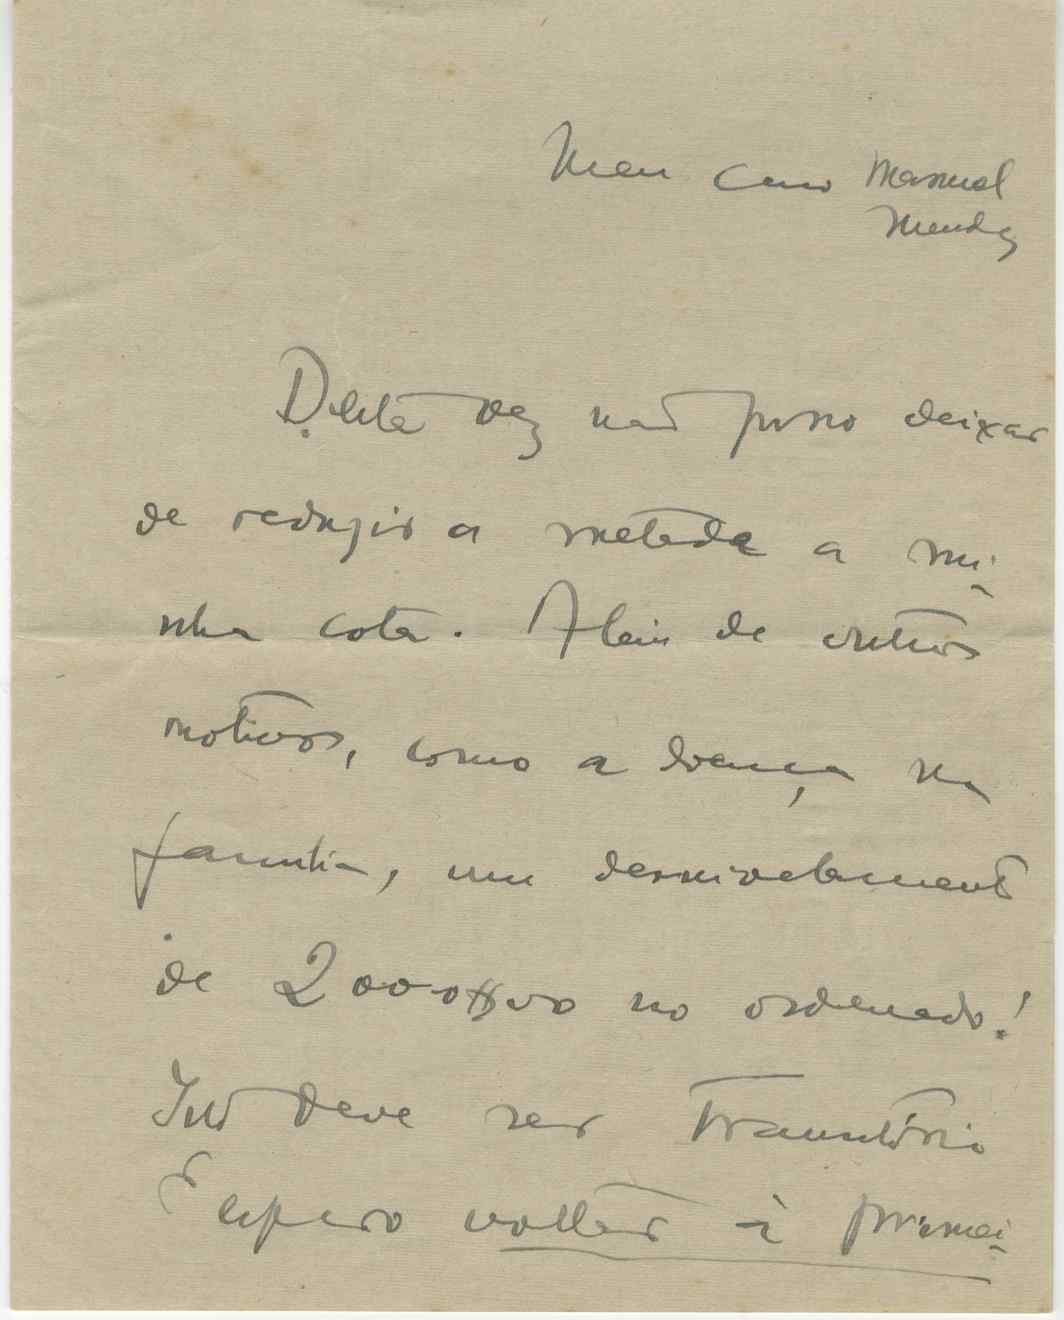 Meu caro Manuel
Mendes
Desta vez não posso deixar
de reduzir a metade a mi-
nha cota. Alem de outros
motivos, como a doença na
familia, um desnivelamento
de 2000$00 no ordenado!
Isto deve ser transitório
Espero voltar à primei-